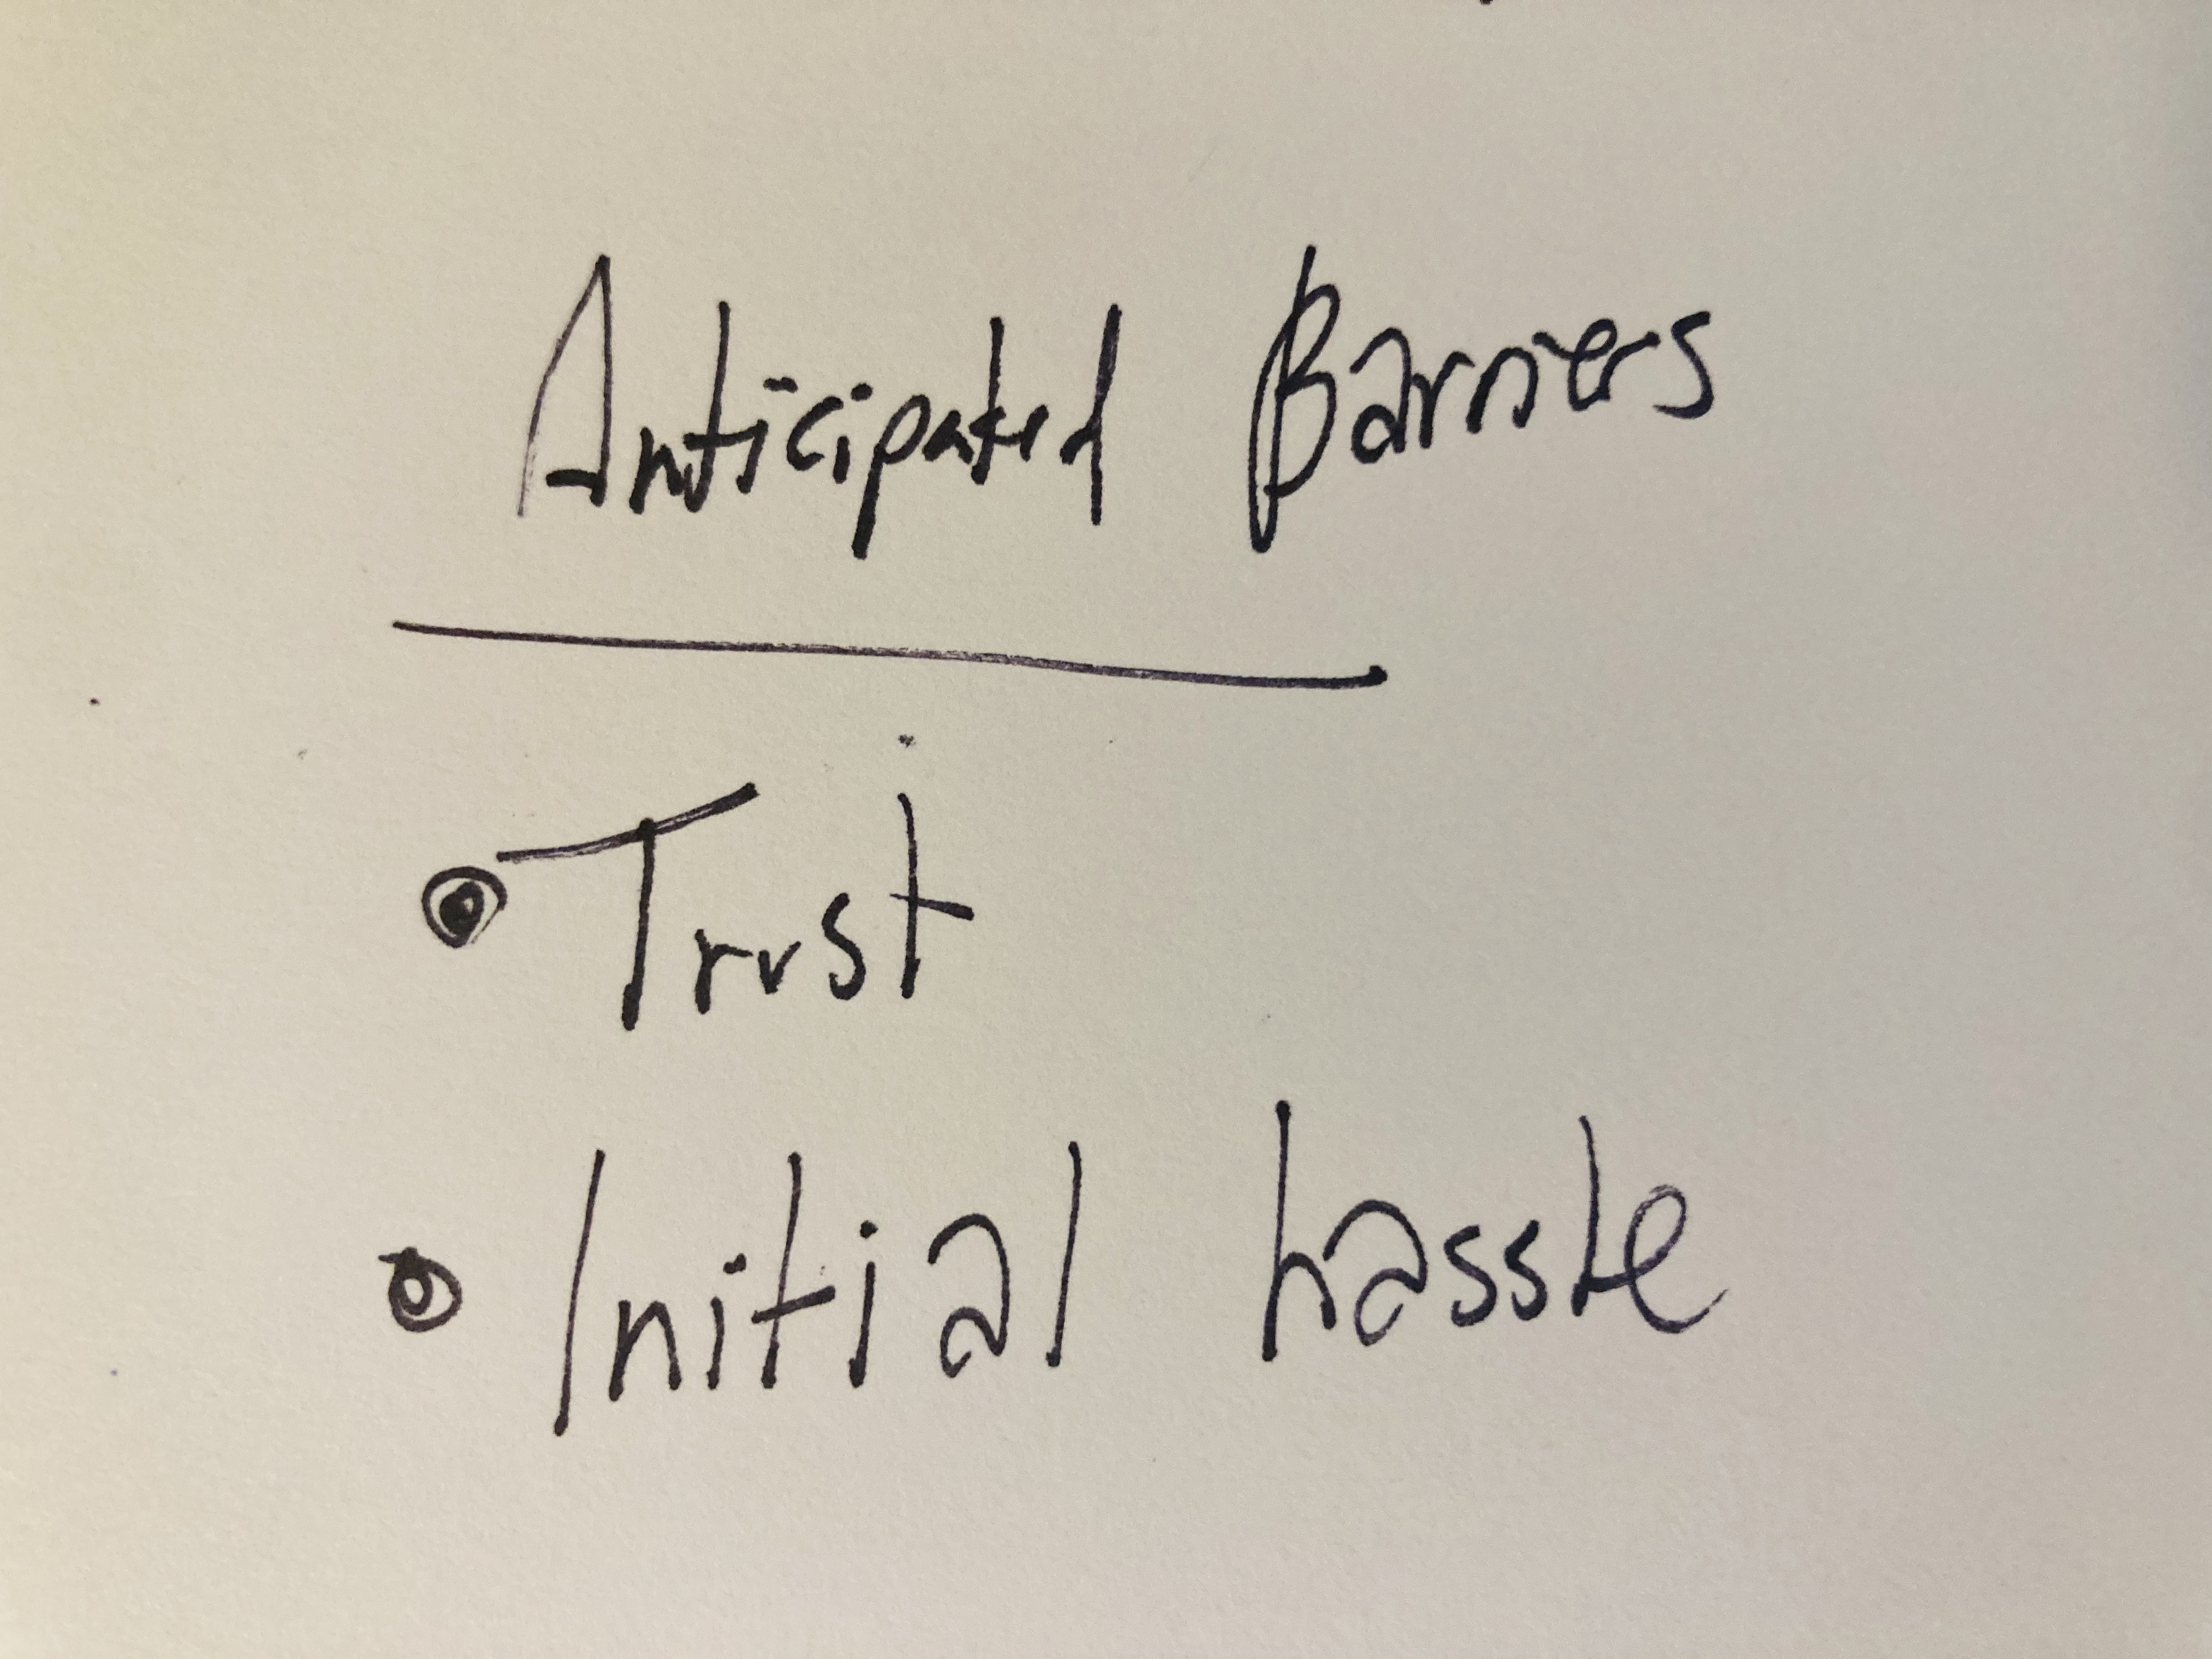 Anticipated Barriers
• Trust
• Initial hassle